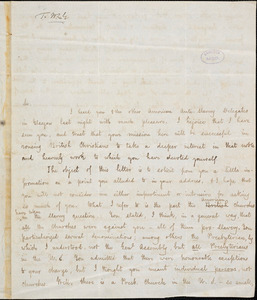 Sir
I heard you & the other American Anti-Slavery Delegates
in Glasgow last night with much pleasure. I rejoice that I have
seen you, and trust that your mission here will be successful in
rousing British Christians to take a deeper interest in that noble
and heavenly work to which you have devoted yourself.
The object of this letter is to solicit from you a little in-
formation on a point you alluded to in your address, & I hope that
you will not consider me either impertinent or intrusive for asking
so much of you. What I refer to is the part the American Churches
the Slavery question. You stated, in a general way that
all the Churches were against you - all of them pro slavery. You
particularized several denominations, among others the Presbyterian, by
which I understood not the Genl Assembly but all Presbyterians
in the U.S. You admitted that there were honourable exceptions
to your charge, but I thought you meant individual persons, not
Churches. Now, there is a Church in the U.S. so small